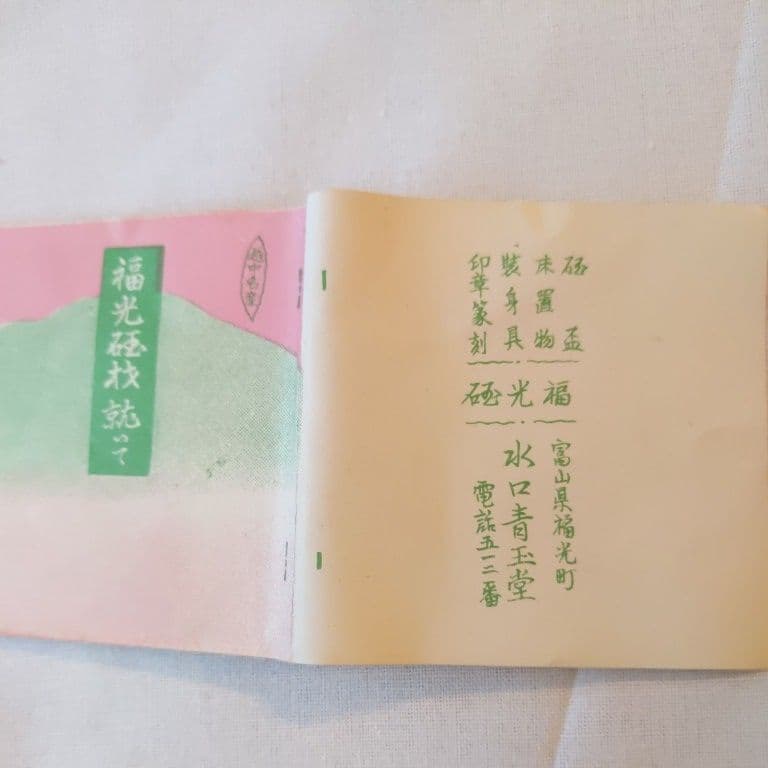 越中名産
福光硅材就いて
硅盃
床置物
裝身具
印章篆刻
福光硅
富山県福光町
水口青玉堂
電話五一二番